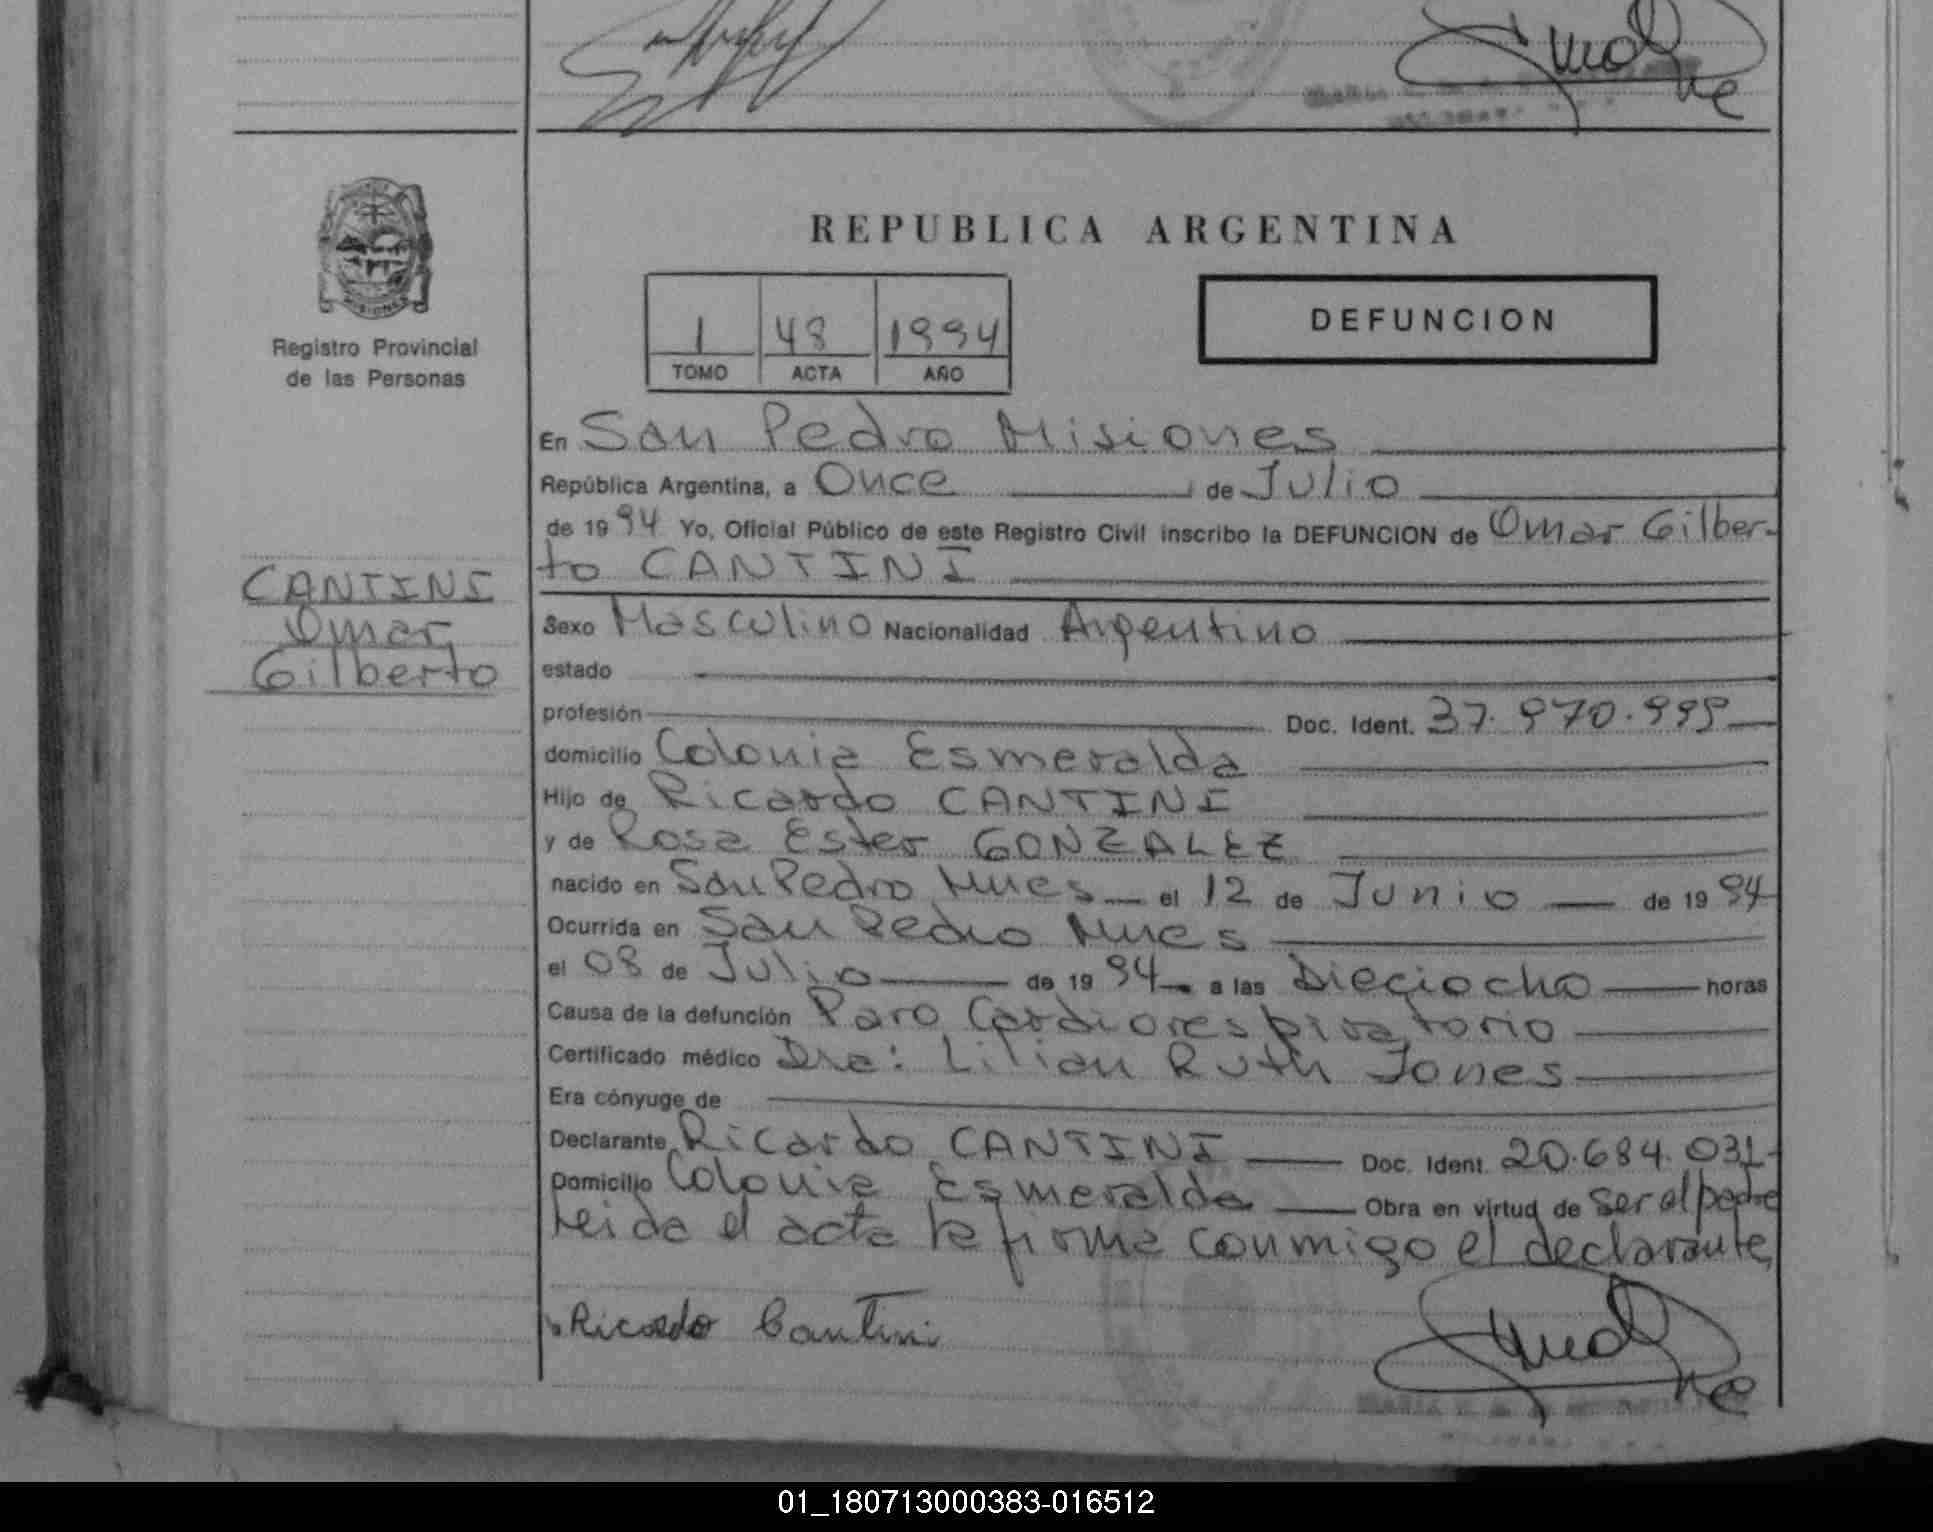 REPUBLICA ARGENTINA
1 48 1994
TOMO ACTA AÑO
DEFUNCION
Registro Provincial
de las Personas
CANTINI
Omar
Gilberto
En San Pedro Misiones
República Argentina, a Once de Julio
de 1994 Yo, Oficial Público de este Registro Civil inscribo la DEFUNCION de Omar Gilber-
to CANTINI
Sexo Masculino Nacionalidad Argentino
estado
profesión Doc. Ident. 37.970.999
domicilio Colonia Esmeralda
Hijo de Ricardo CANTINI
y de Rosa Ester GONZALEZ
nacido en San Pedro Mnes el 12 de Junio de 1994
Ocurrida en San Pedro Mnes
el 08 de Julio de 1994 a las Dieciocho horas
Causa de la defunción Paro Cardiorespiratorio
Certificado médico Dra: Lilian Ruth Jones
Era cónyuge de
Declarante Ricardo CANTINI Doc. Ident. 20.684.031
Domicilio Colonia Esmeralda Obra en virtud de ser el padre
leida el acta la firma conmigo el declarante
Ricardo Cantini
01_180713000383-016512